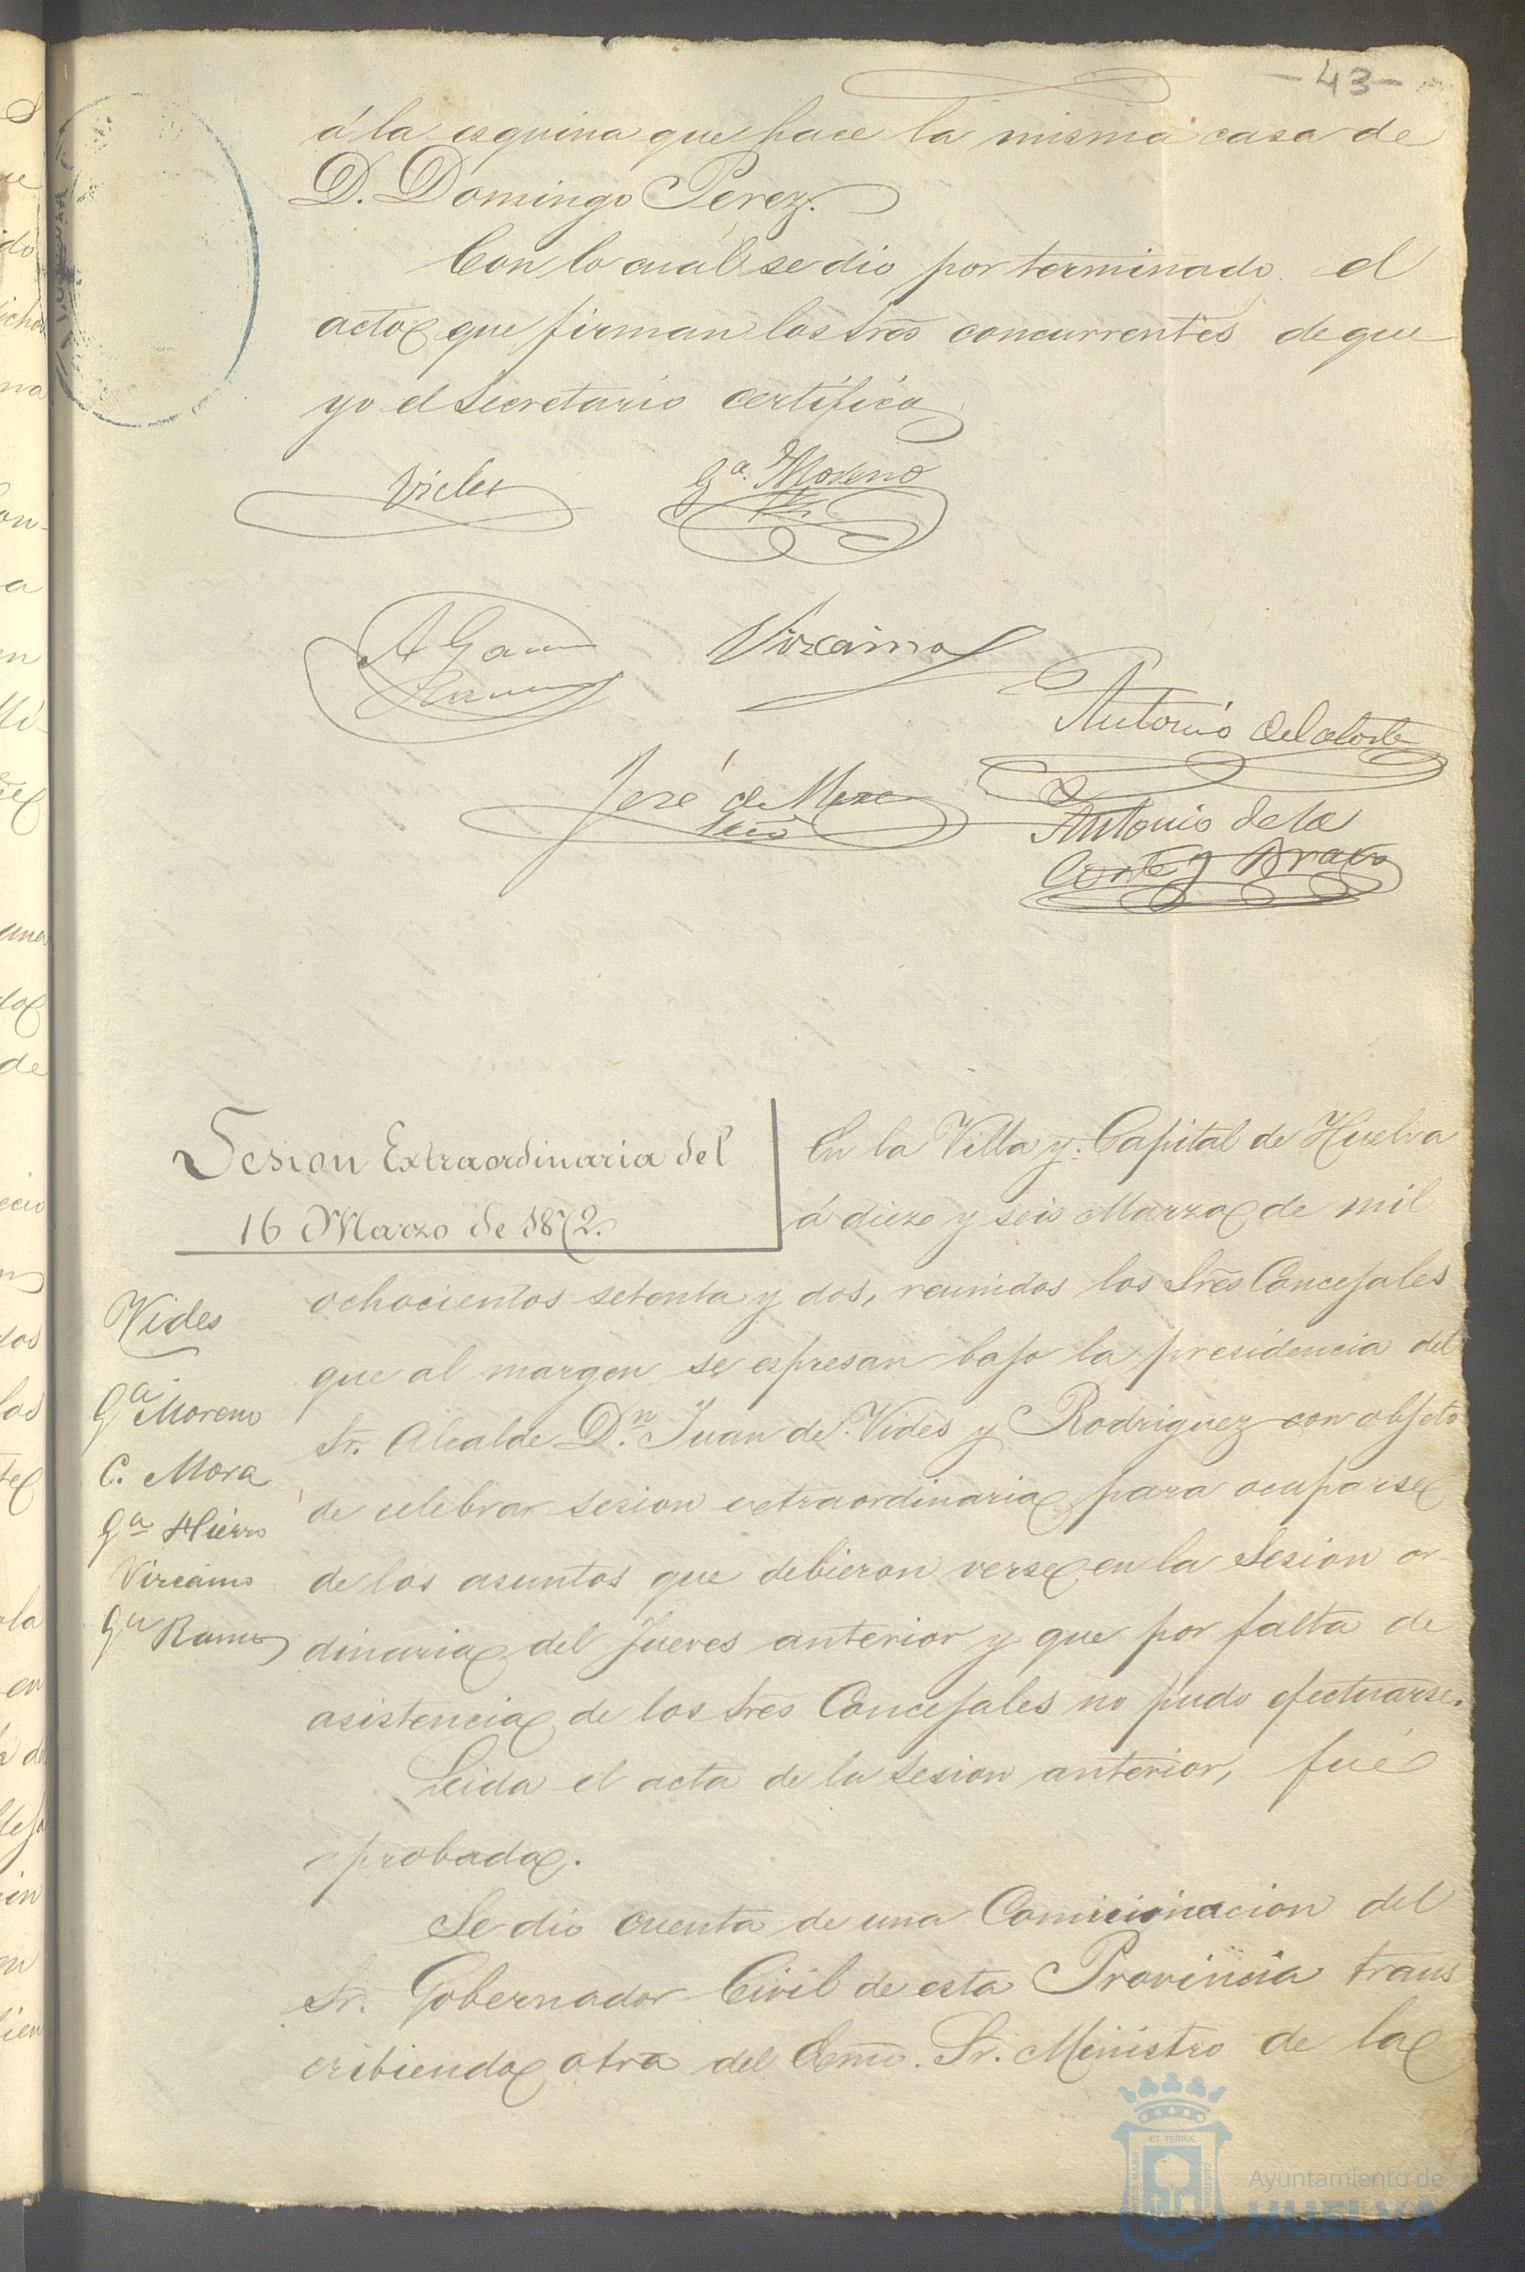 -43-
á la esquina que hace la misma casa de
D. Domingo Perez.
Con lo cual se dio por terminado el
acto que firman los Sres concurrentes de que
yo el Secretario certifico
Vides
Gª. Moreno
A Gª
Ramos
Vizcaino
Antonio de la Corte
José de Mora
Srio
Antonio de la
Corte y Bravo
Sesion Extraordinaria del
16 Marzo de 1872.
En la Villa y Capital de Huelva
á diez y seis Marzo de mil
ochocientos setenta y dos, reunidos los Sres Concejales
que al margen se espresan bajo la presidencia del
Sr. Alcalde Dn. Juan de Vides y Rodriguez con objeto
de celebrar sesion extraordinaria para ocuparse
de los asuntos que debieron verse en la Sesion or-
dinaria del Jueves anterior y que por falta de
asistencia de los Sres Concejales no pudo efectuarse.
Vides
Gª Moreno
C. Mora
Gª Hierro
Vizcaino
Gª Ramos
Leida el acta de la sesion anterior, fué
aprobada.
Se dio cuenta de una Comunicacion del
Sr. Gobernador Civil de esta Provincia trans
cribiendo otra del Exmo. Sr. Ministro de la
Ayuntamiento de
HUELVA